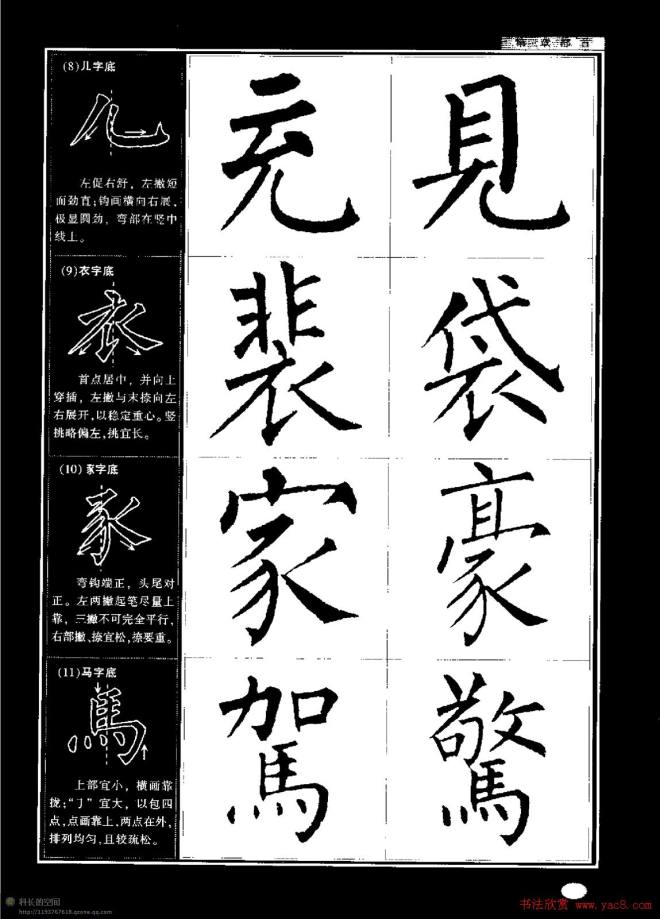 第二章 部首
(8)儿字底
儿
左促右舒，左撇短
而劲直；钩画横向右展、
极显圆劲，弯部在竖中
线上。
充 見
(9)衣字底
衣
首点居中，并向上
穿插，左撇与末捺向左
右展开，以稳定重心。竖
挑略偏左，挑宜长。
裴 袋
(10)豕字底
豕
弯钩端正，头尾对
正。左两撇起笔尽量上
靠，三撇不可完全平行，
右部撇、捺宜松，捺要重。
家 豪
(11)马字底
馬
上部宜小，横画靠
拢；“丁”宜大，以包四
点，点画靠上，两点在外，
排列均匀，且较疏松。
駕 驚
科长的空间
http://1193767618.qzone.qq.com
书法欣赏 www.yac8.com